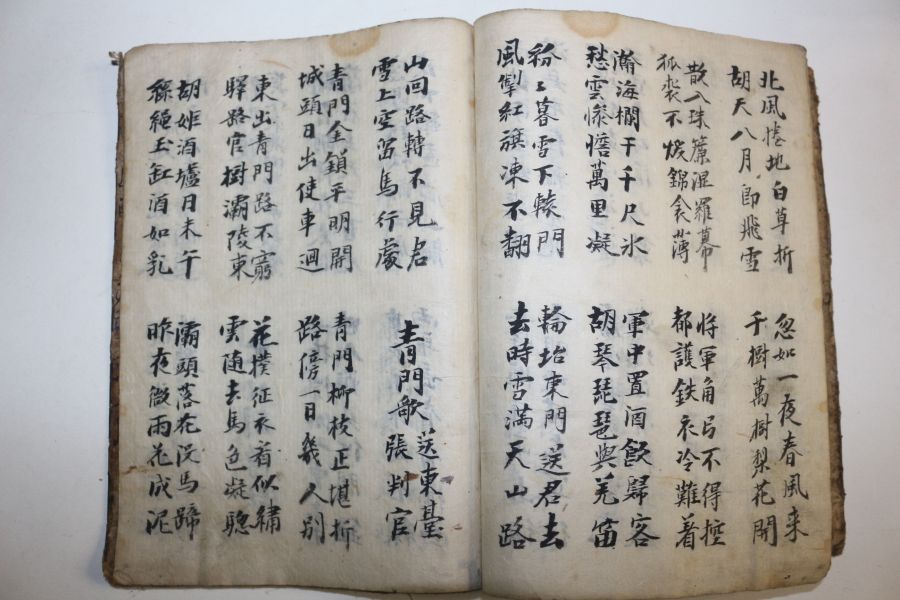 北風捲地白草折
胡天八月即飛雪
忽如一夜春風来
千樹萬樹梨花開
散入珠簾湿羅幕
狐裘不煖錦衾薄
將軍角弓不得控
都護鉄衣冷難着
瀚海欄干千尺氷
愁雲慘憺萬里凝
軍中置酒飲歸客
胡琴琵琶與羌笛
粉〻暮雪下轅門
風掣紅旗凍不翻
輪坮東門送君去
去時雪滿天山路
山回路轉不見君
雪上空留馬行處
青門歌 送東臺
張判官
青門金鎖平明開
城頭日出使車迴
青門柳枝正堪折
路傍一日幾人別
東出青門路不窮
驛路官樹灞陵東
花撲征衣看似繡
雲随去馬色凝驄
胡姬酒壚日未午
絲繩玉缸酒如乳
灞頭落花沒馬蹄
昨夜微雨花成泥